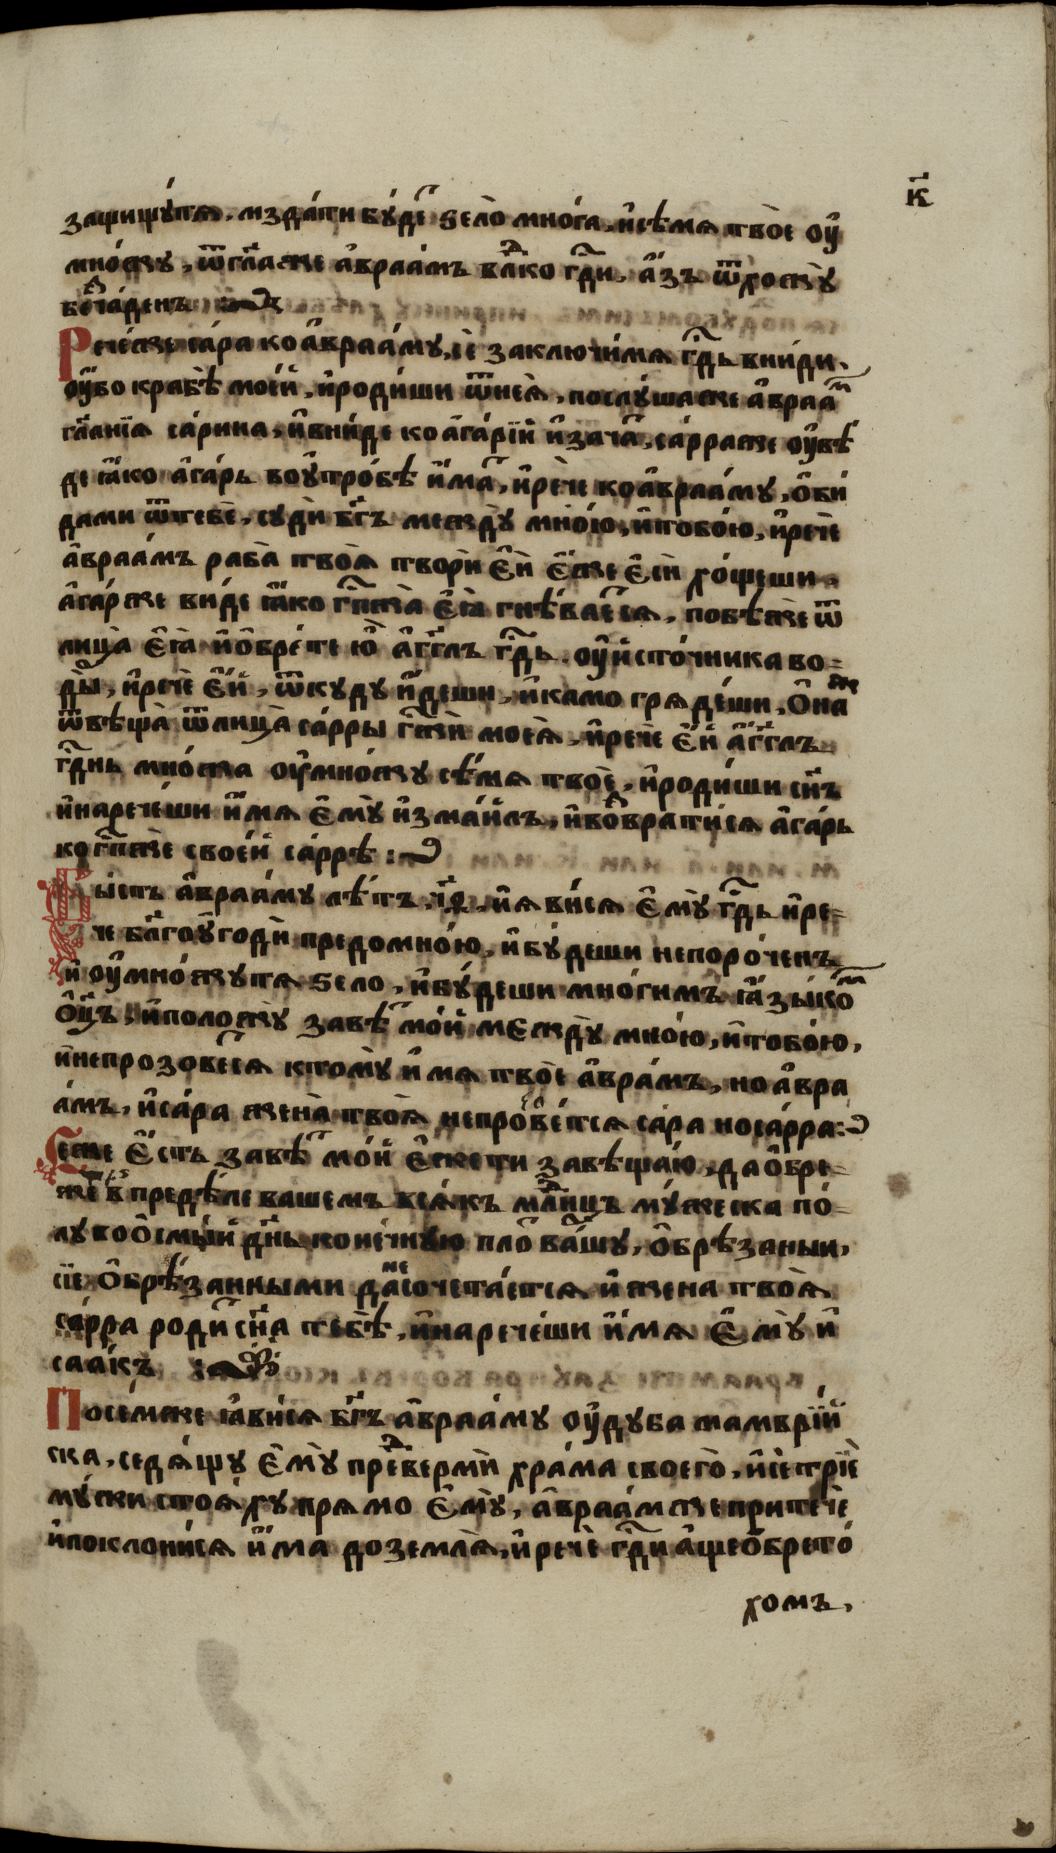 к҃
защищꙋ́тѧ. мзда́ти бꙋ́дⷷ ѕело̀ мно́га, и҆сѣ́мѧ твоѐ ᲂу҆
мно́жꙋ, ѿгл҃аже а҆враа́мъ влⷣко гдⷭ҇и, а҆́зъ ѿхожꙋ̀
беⷥча́денъ
Рече́жесара коа҆враа́мꙋ, сѐ заключи́мѧ гдⷭ҇ь вни́ди,
ᲂу҆́бо крабѣ̀ мое́й, и҆роди́ши ѿнеѧ̀, послꙋ́шаже а҆врааⷨ
гл҃анїѧ са́рина, и҆вни́де коа҆га́рїи и҆зачаⷭ҇, са́рраже ᲂу҆вѣ́
де ꙗ҆́ко а҆га́рь воᲂу҆тро́бѣ и҆́маⷭ҇, и҆речѐ коа҆враа́мꙋ, ѻ҆би́
дами ѿтебѐ, сꙋдѝ бг҃ъ междꙋ̀ мно́ю, и҆тобо́ю, и҆речѐ
а҆враа́мъ раба̀ твоѧ̀ творѝ є҆́й є҆́же є҆сѝ хо́щеши,
а҆га́рже ви́де ꙗ҆́ко гпⷭ҇жа̀ є҆ѧ̀ гнѣ́ваеⷭ҇сѧ, побѣ́же ѿ
лица̀ є҆ѧ̀ и҆ѻ҆брѣ́те ю҆̀ а҆́гг҃лъ гдⷭ҇ь. ᲂу҆и҆сто́чника во-
ды̀, и҆речѐ є҆́й, ѿкꙋдꙋ и҆́деши, и҆камо грѧде́ши, ѻ҆́на же
ѿвѣща̀ ѿлица̀ са́рры гпⷭ҇жѝ моеѧ̀, и҆речѐ є҆́й а҆́гг҃лъ
гдⷭ҇нь мно́жа ᲂу҆мно́жꙋ сѣ́мѧ твоѐ, и҆роди́ши сн҃ъ
и҆нарече́ши и҆́мѧ є҆мꙋ̀ и҆зма́илъ, и҆воⷥврати́сѧ а҆га́рь
когпⷭ҇жѐ свое́й са́ррѣ
Бы́сть а҆враа́мꙋ лѣ́тъ, ч҃ѳ, и҆ꙗ҆ви́сѧ є҆мꙋ̀ гдⷭ҇ь и҆ре-
че бл҃гоᲂу҆годѝ предомно́ю, и҆бꙋ́деши непоро́ченъ
и҆ ᲂу҆мно́жꙋтѧ ѕело, и҆бꙋ́деши мно́гимъ ꙗ҆зы́коⷨ
ѻ҆ц҃ъ, и҆положꙋ̀ завѣⷮ мо́й междꙋ̀ мно́ю, и҆тобо́ю,
и҆непрозовеⷮсѧ ктомꙋ̀ и҆́мѧ твоѐ а҆вра́мъ, но а҆вра
а́мъ, и҆са́ра жена̀ твоѧ̀ непрозове́тсѧ са́ра носа́рра:
Сеже є҆́сть завѣⷮ мо́й є҆́жети завѣща́ю, даѻ҆брѣ-
же́тъ впредѣ́ле вашемъ всѧ́къ млⷣнцъ мꙋ́жеска по́-
лꙋ воѻ҆смы́й дн҃ь коне́чнꙋю плоⷮ ва́шꙋ, ѻ҆брѣзаныи,
сїе ѻ҆брѣ́занными данесочета́етсѧ и҆жена твоѧ̀
са́рра родиⷮ сн҃а тебѣ̀, и҆нарече́ши и҆́мѧ є҆мꙋ̀ и҆
саа́къ
Посе́мже ꙗ҆ви́сѧ бг҃ъ а҆враа́мꙋ ᲂу҆дꙋба мамврїи́
ска, седѧ́щꙋ є҆мꙋ̀ преⷣве́рми хра́ма своего̀, и҆сѐ трїѐ
мꙋ́жи стоѧ́хꙋ прѧмо є҆мꙋ̀, а҆враа́мже притечѐ
и҆поклони́сѧ и҆́ма доземлѧ̀, и҆речѐ гдⷭ҇и а҆щеѻ҆брето́
хомъ,